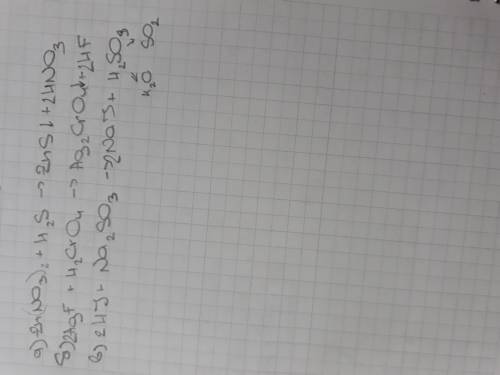 а) Zn(NO3)2 + H2S → ZnS↓ + 2HNO3
б) 2AgF + H2CrO4 → Ag2CrO4↓ + 2HF
в) 2HJ + Na2SO3 → 2NaJ + H2SO3
H2O SO2